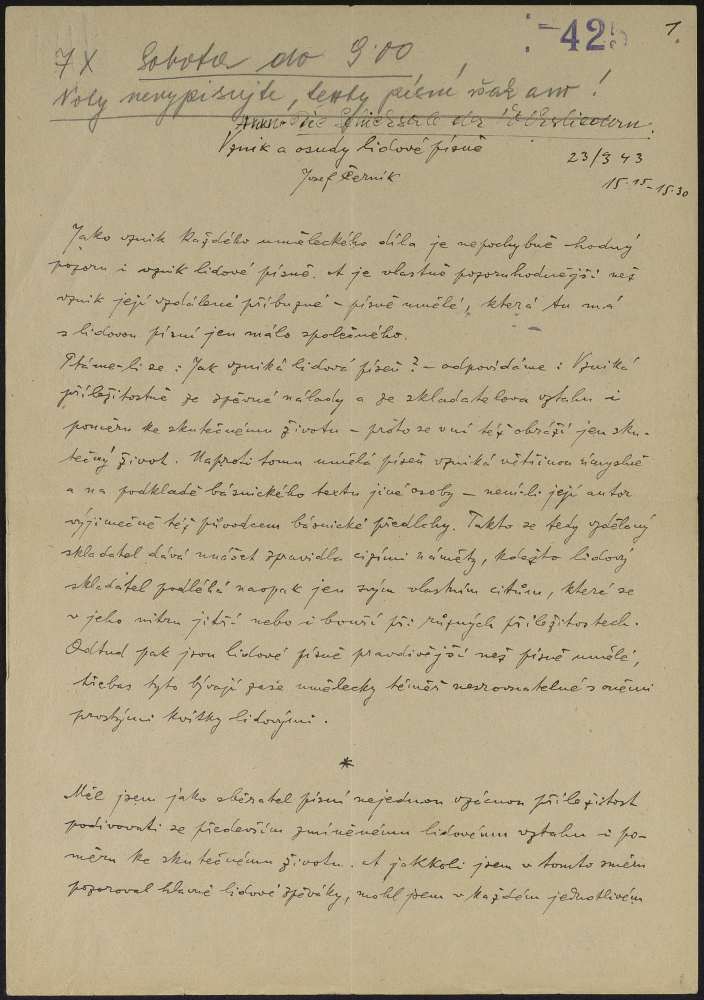 -425
1.
7X Sobota do 9·00
Noty nevypisujte, texty písní však ano!
Die Schicksale der Volkslieder.
Vznik a osudy lidové písně
23/3 43
Josef Černík
15·15-15·30
Jako vznik každého uměleckého díla je nepochybně hodný
pozoru i vznik lidové písně. A je vlastně pozoruhodnější než
vznik její vzdálené příbuzné – písně umělé, která tu má
s lidovou písní jen málo společného.
Ptáme-li se: Jak vzniká lidová píseň? – odpovídáme: Vzniká
příležitostně ze zpěvné nálady a ze skladatelova vztahu i
poměru ke skutečnému životu – proto se v ní též obráží jen sku-
tečný život. Naproti tomu umělá píseň vzniká většinou úmyslně
a na podkladě básnického textu jiné osoby – není-li její autor
výjimečně též původcem básnické předlohy. Takto se tedy vzdělaný
skladatel dává unášet zpravidla cizími náměty, kdežto lidový
skladatel podléhá naopak jen svým vlastním citům, které se
v jeho nitru jitří nebo i bouří při různých příležitostech.
Odtud pak jsou lidové písně pravdivější než písně umělé,
třebas tyto bývají zase umělecky téměř nesrovnatelné s oněmi
prostými kvítky lidovými.
*
Měl jsem jako sběratel písní nejednou vzácnou příležitost
podivovati se především zmíněnému lidovému vztahu i po-
měru ke skutečnému životu. A jakkoli jsem v tomto směru
pozoroval hlavně lidové zpěváky, mohl jsem v každém jednotlivém